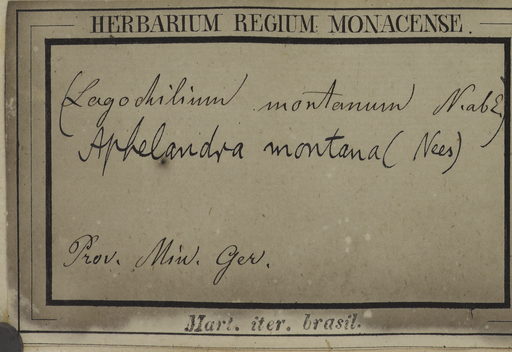 HERBARIUM REGIUM MONACENSE.
(Lagochilium montanum N.abE.)
Aphelandra montana (Nees)
Prov. Min. Ger.
Mart. iter. brasil.